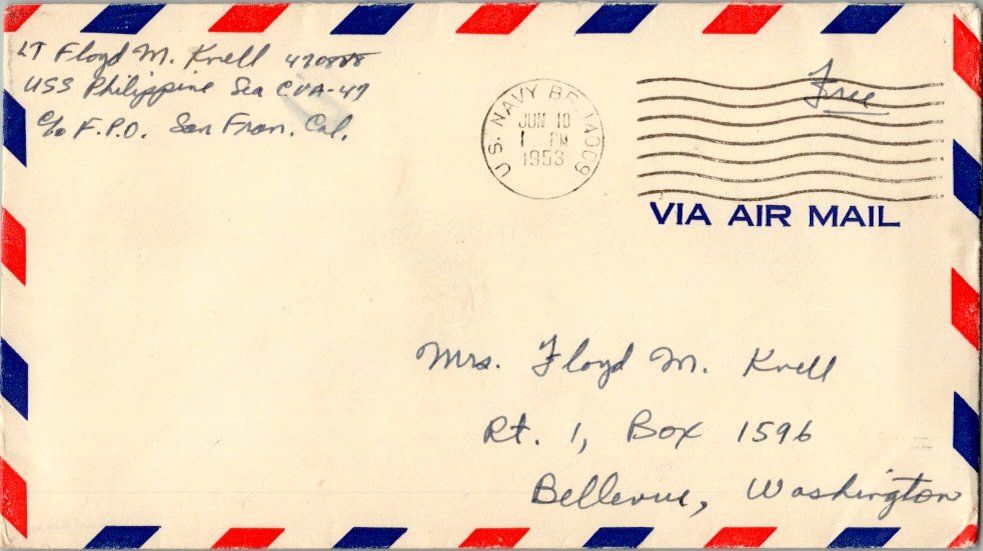 LT Floyd M. Knell
USS Philippine Sea CVA-47
c/o F.P.O. San Fran. Cal.
U.S. NAVY 14009
JUN 10
1 PM
1953
Free
VIA AIR MAIL
Mrs. Floyd M. Knell
Rt. 1, Box 1596
Bellevue, Washington